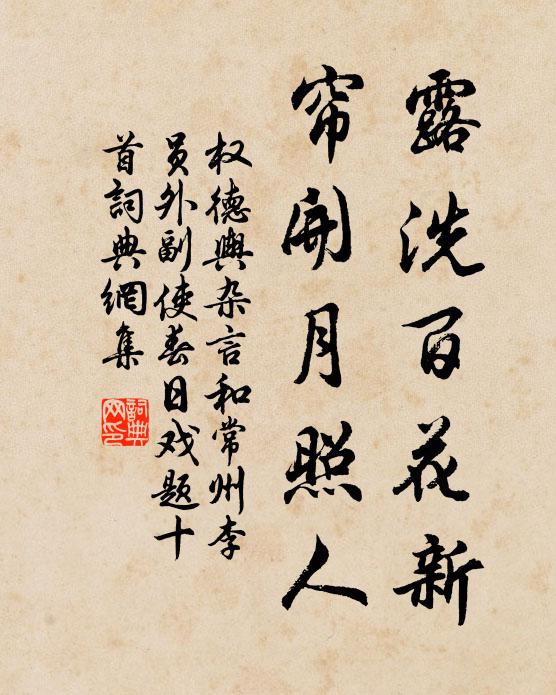 露洗百花新
帘開月照人
权德輿杂言和常州李
員外副使春日戏題十
首詞典網集
詞典
网印